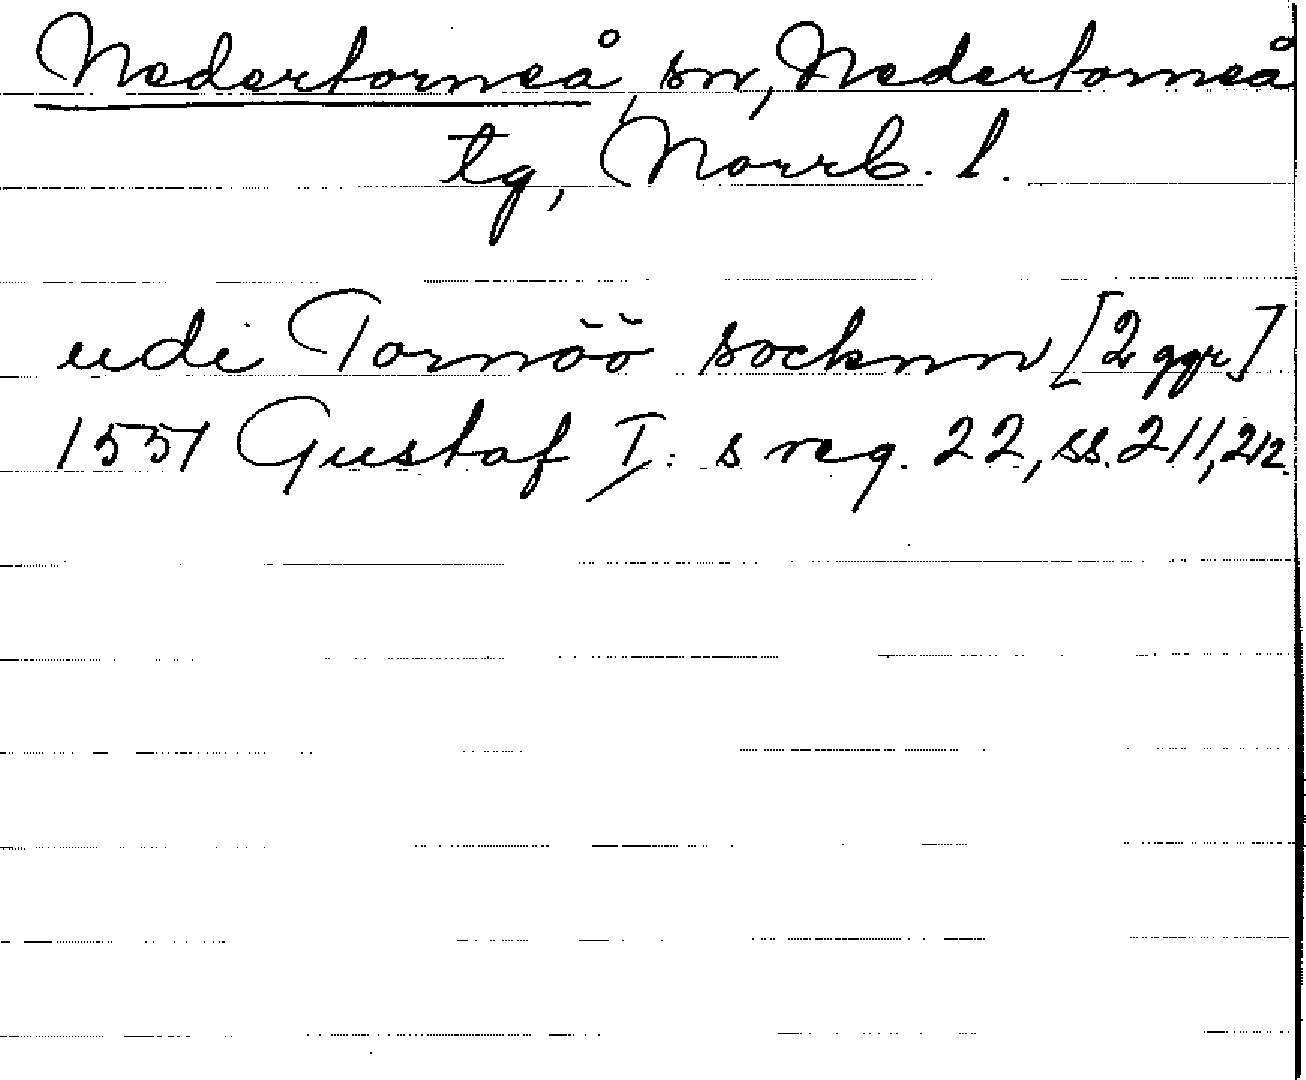 Nedertorneå, sn, Nedertorneå
tg, Norrb. l.
udi Tornöö socknn [2 ggr]
1551 Gustaf I:s reg. 22, ss. 211, 212.